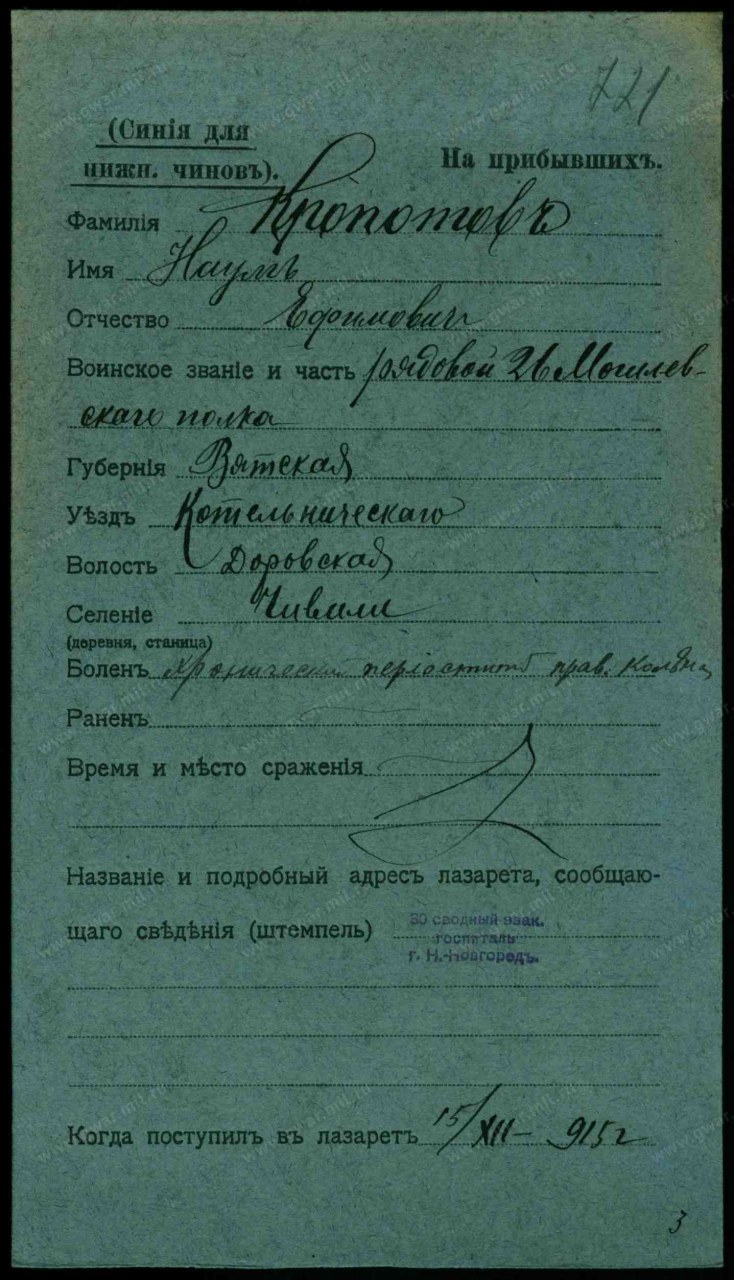 721
(Синія для
нижн. чиновъ).
На прибывшихъ.
Фамилія Кропотовъ
Имя Наумъ
Отчество Ефимович
Воинское званіе и часть рядовой 26 Могилев-
скаго полка
Губернія Вятская
Уѣздъ Котельническаго
Волость Доровская
Селеніе Чивили
(деревня, станица)
Боленъ Хронический періоститъ прав. колѣна
Раненъ
Время и мѣсто сраженія
Названіе и подробный адресъ лазарета, сообщаю-
щаго свѣдѣнія (штемпель) 30 сводный эвак.
госпиталь
г. Н.-Новгородъ.
Когда поступилъ въ лазаретъ 15/XII – 915 г
3